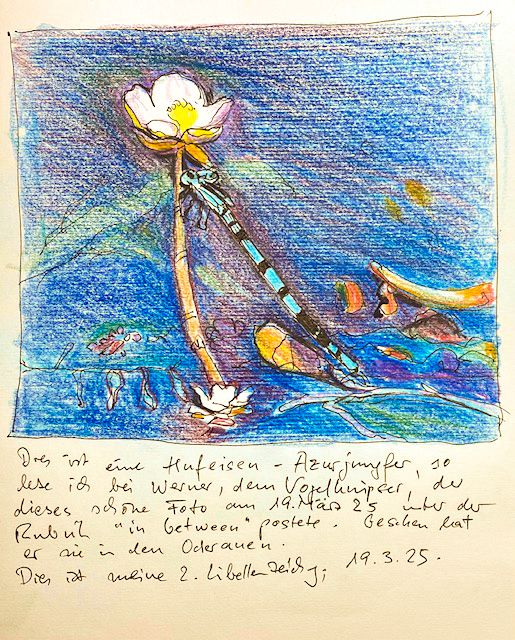 Dies ist eine Hufeisen-Azurjungfer, so
lese ich bei Werner, dem Vogelknipser, der
dieses schöne Foto am 19. März 25 unter der
Rubrik "in between" postete. Gesehen hat
er sie in den Oderauen.
Dies ist meine 2. Libellenzeichg, 19.3.25.